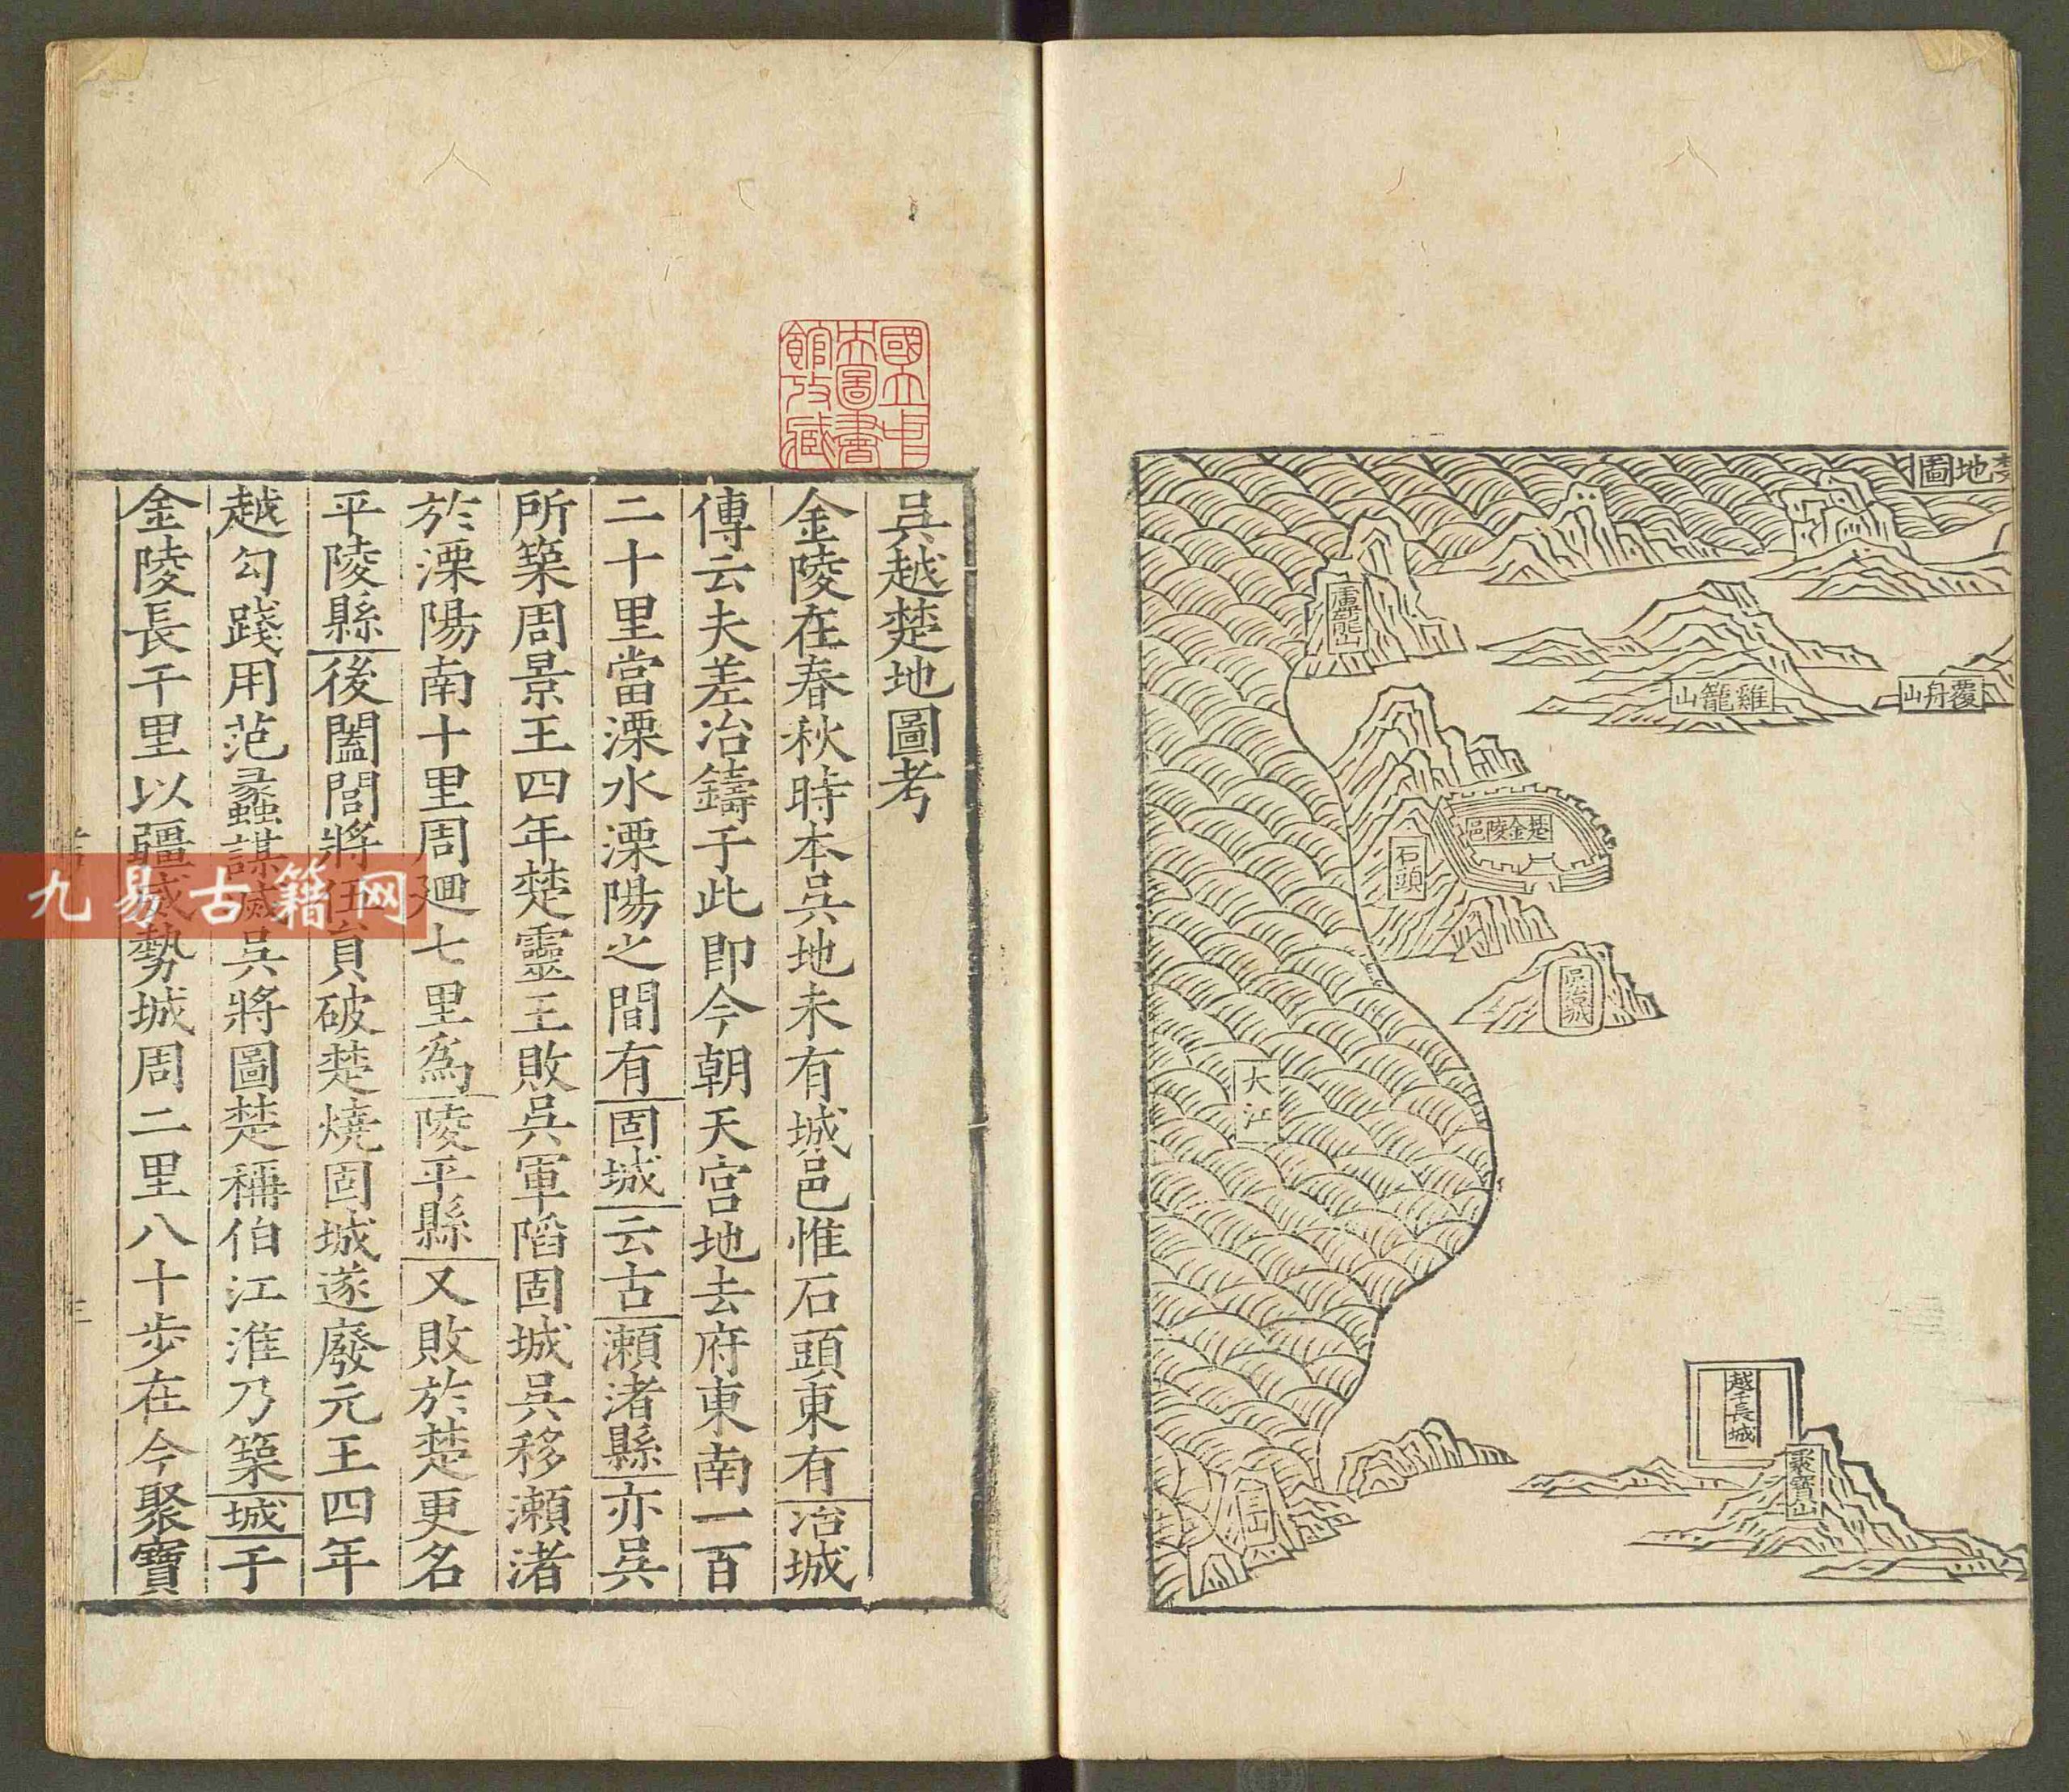 圖地
覆舟山
雞籠山
盧龍山
楚金陵邑
石頭
吳冶城
大江
越王長城
聚寶山
國立中
央圖書
館攷藏
吳越楚地圖考
金陵在春秋時本吳地未有城邑惟石頭東有冶城
傳云夫差冶鑄于此即今朝天宮地去府東南一百
二十里當溧水溧陽之間有固城云古瀨渚縣亦吳
所築周景王四年楚靈王敗吳軍陷固城吳移瀨渚
於溧陽南十里周廻七里爲陵平縣又敗於楚更名
平陵縣後闔閭將伍員破楚燒固城遂廢元王四年
越勾踐用范蠡謀滅吳將圖楚稱伯江淮乃築城于
金陵長干里以疆威勢城周二里八十步在今聚寶
九易古籍网